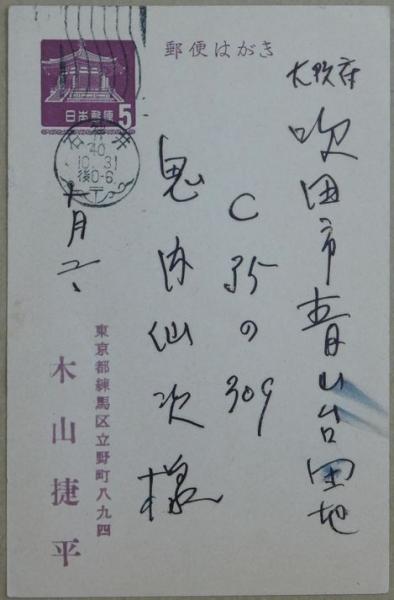 郵便はがき
日本郵便
5
40
10.31
後0-6
大阪府
吹田市青山台団地
C35の309
鬼内仙次様
十月二
東京都練馬区立野町八九四
木山捷平